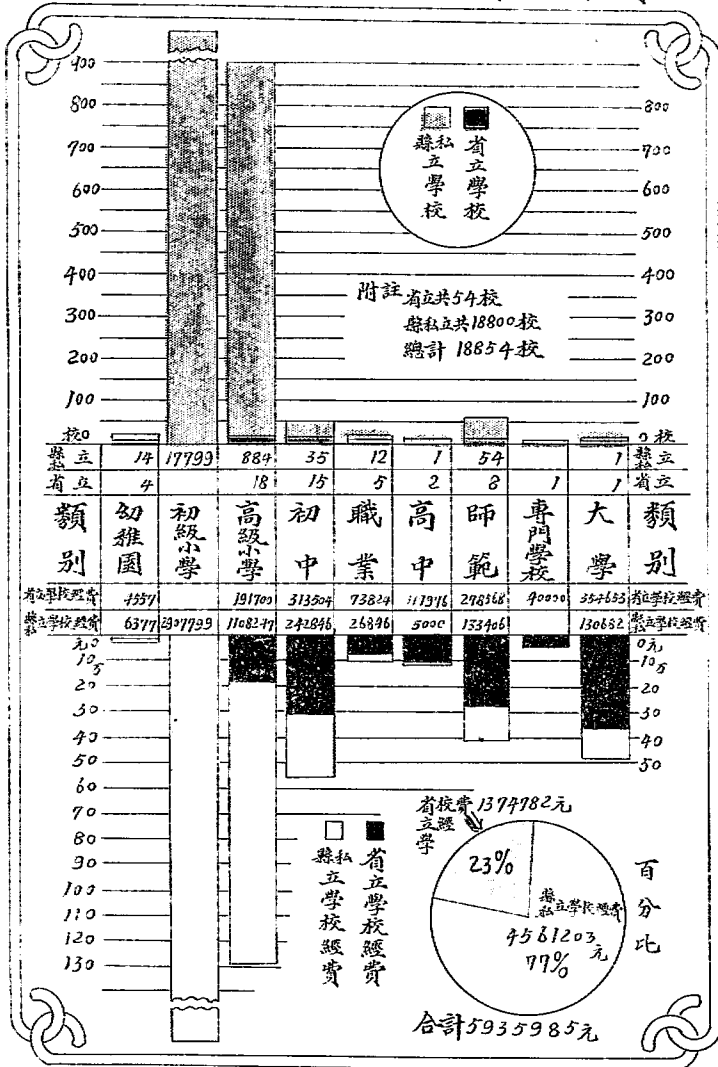 900
800
700
600
500
400
300
200
100
校0
800
700
600
500
400
300
200
100
0校
縣私立學校
省立學校
附註 省立共54校
縣私立共18800校
總計 18854校
縣私立 14 17799 884 35 12 1 54 1 縣私立
省立 4 18 15 5 2 8 1 1 省立
類別 幼稚園 初級小學 高級小學 初中 職業 高中 師範 專門學校 大學 類別
省立學校經費 4557 191700 313504 73824 111976 278568 40000 354653 省立學校經費
縣私立學校經費 6377 2907799 1108247 242846 26846 5000 133406 130682 縣私立學校經費
元0
10
20
30
40
50
60
70
80
90
100
110
120
130
0元
10万
20
30
40
50
縣私立學校經費
省立學校經費
省立學校經費 1374782元
23%
縣私立學校經費
4561203元
77%
百分比
合計5935985元